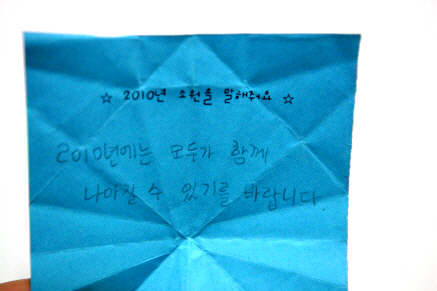 ☆ 2010년 소원을 말해줘요 ☆
2010년에는 모두가 함께
나아갈 수 있기를 바랍니다.